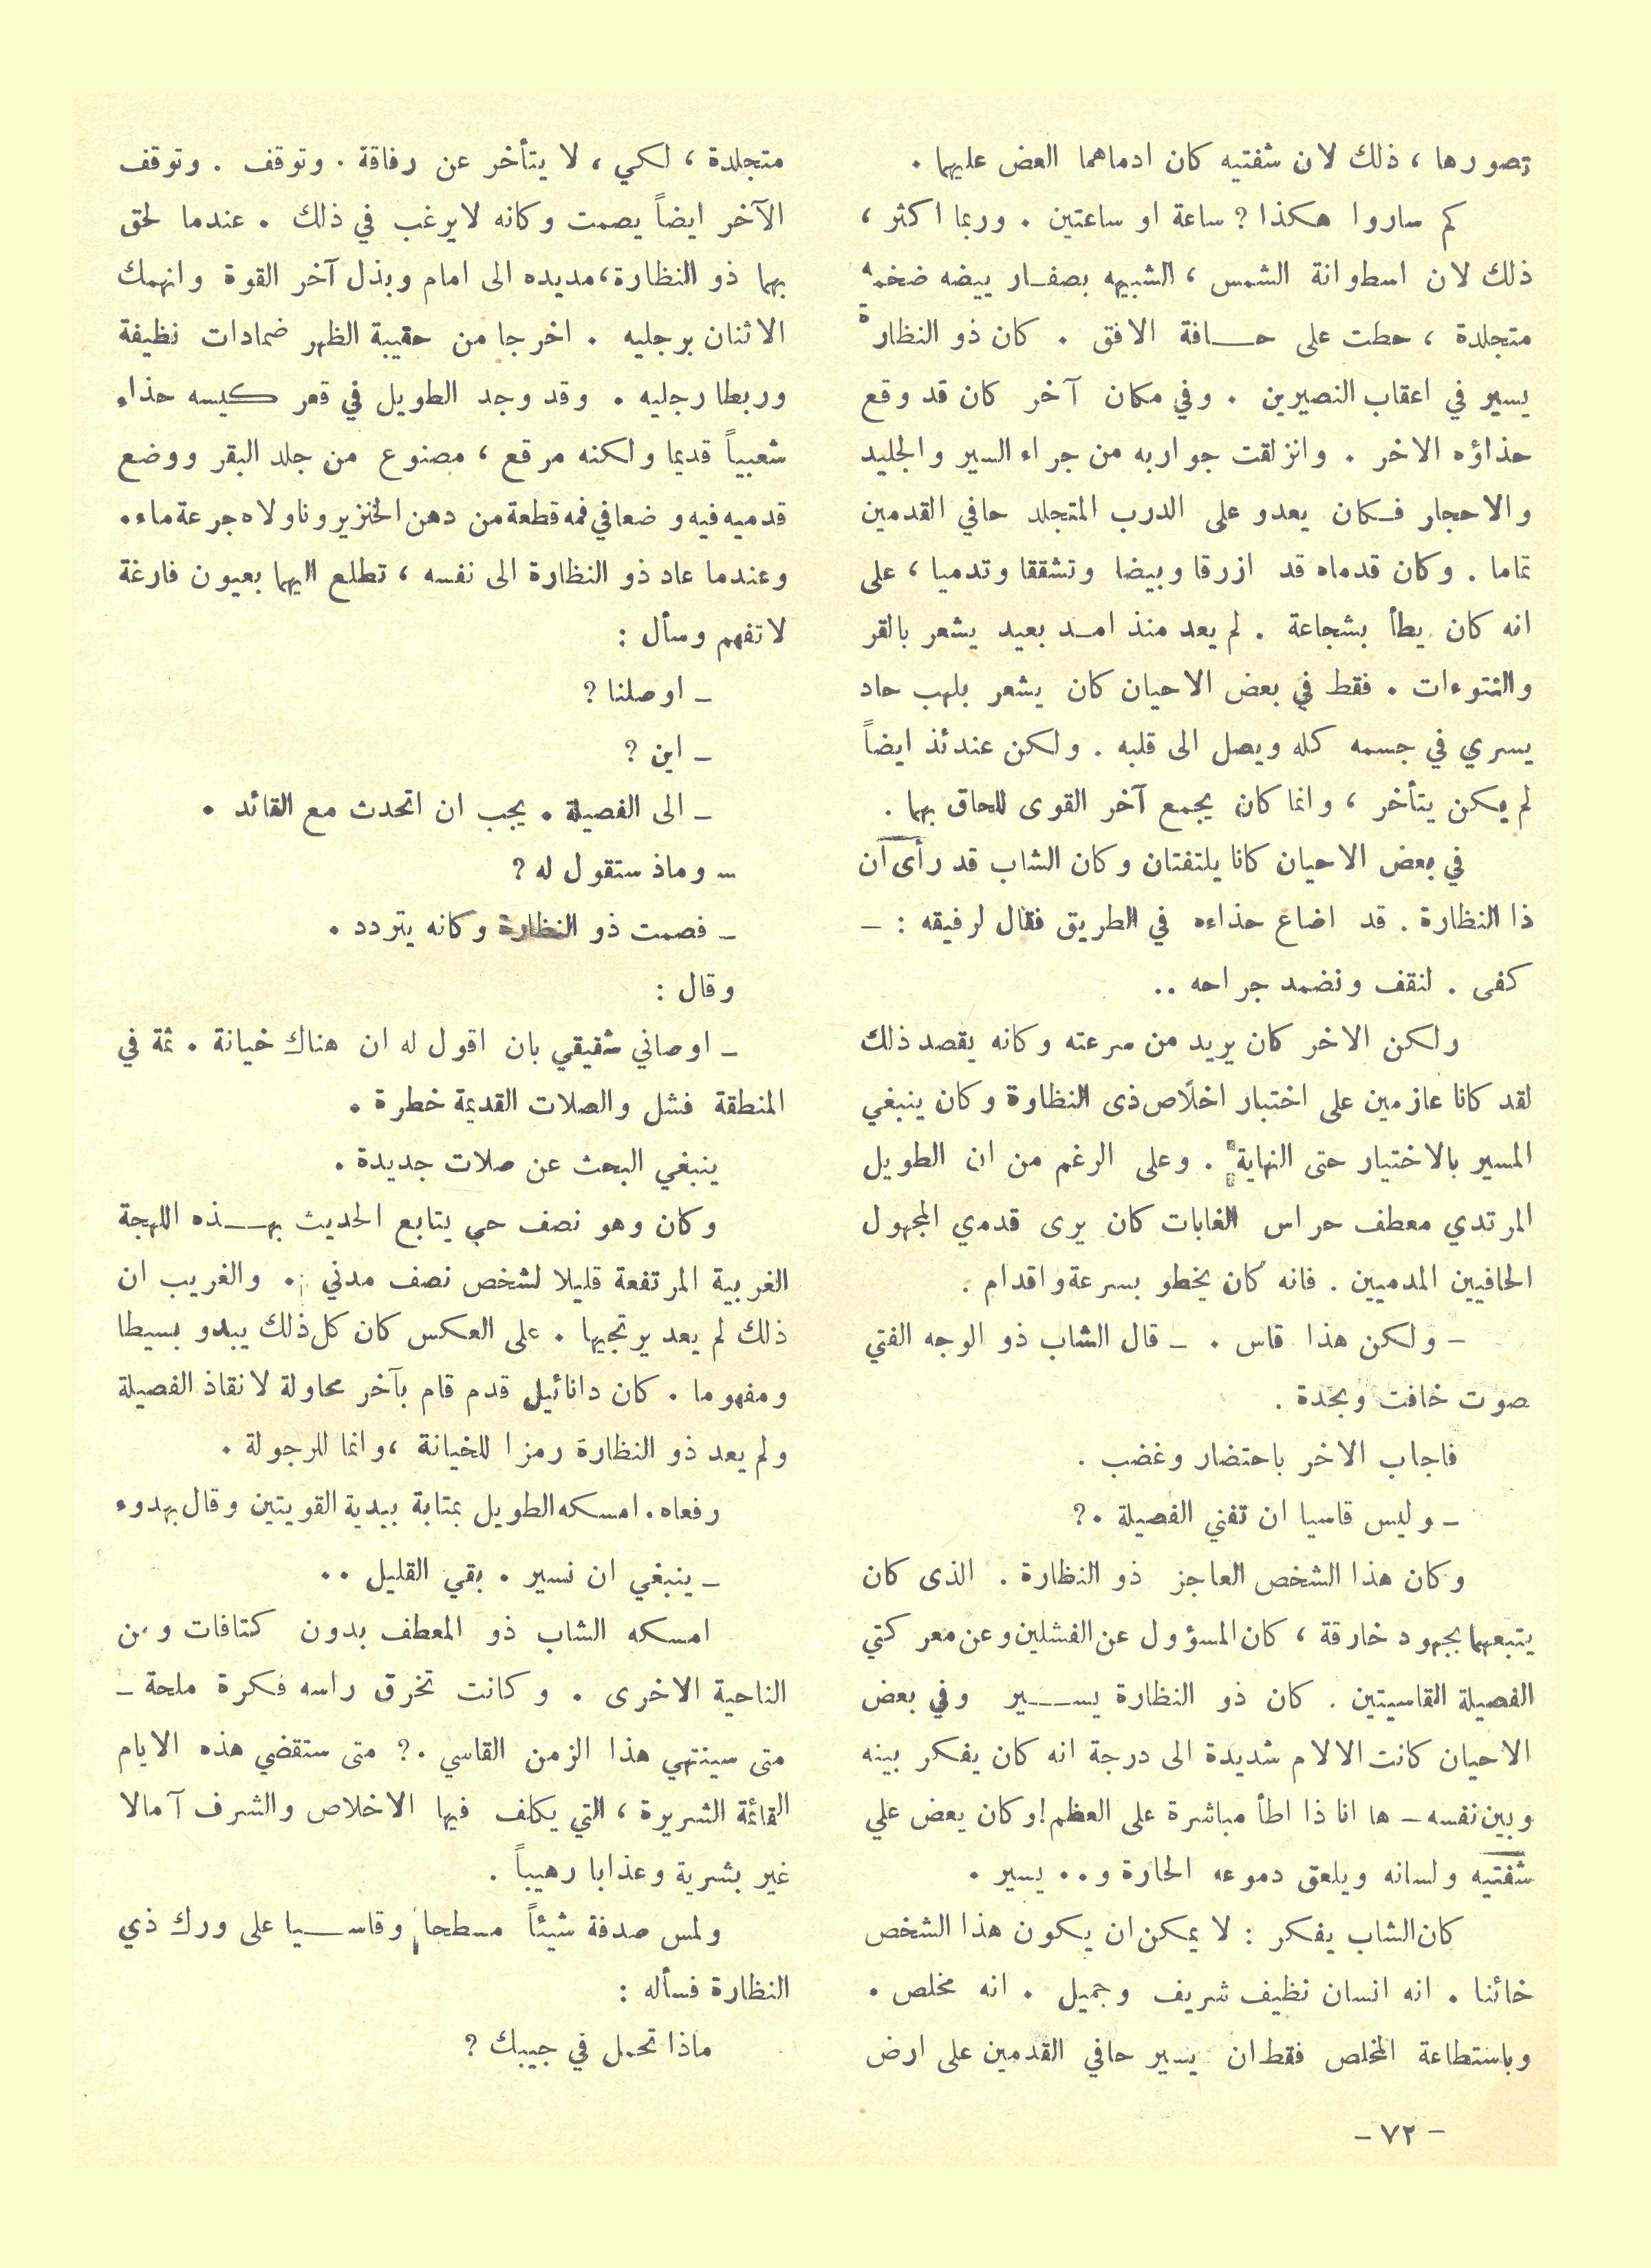 تصورها ، ذلك لان شفتيه كان ادماهما العض عليهما .
كم ساروا هكذا ? ساعة او ساعتين . وربما اكثر ،
ذلك لان اسطوانة الشمس ، الشبيهه بصفار بيضه ضخمه
متجلدة ، حطت على حافة الافق . كان ذو النظارة
يسير في اعقاب النصيرين . وفي مكان آخر كان قد وقع
حذاؤه الاخر . وانزلقت جواربه من جراء السير والجليد
والاحجار فكان يعدو على الدرب المتجلد حافي القدمين
تماما . وكان قدماه قد ازرقا وبيضا وتشققا وتدميا ، على
انه كان يطأ بشجاعة . لم يعد منذ امد بعيد يشعر بالقر
والنتوءات . فقط في بعض الاحيان كان يشعر بلهب حاد
يسري في جسمه كله ويصل الى قلبه . ولكن عندئذ ايضاً
لم يكن يتأخر ، وانما كان يجمع آخر القوى للحاق بهما .
في بعض الاحيان كانا يلتفتان وكان الشاب قد رأى آن
ذا النظارة . قد اضاع حذاءه في الطريق فقال لرفيقه : ـ
كفى . لنقف ونضمد جراحه ..
ولكن الاخر كان يريد من سرعته وكانه يقصد ذلك
لقد كانا عازمين على اختبار اخلاص ذى النظاوة وكان ينبغي
المسير بالاختيار حتى النهاية . وعلى الرغم من ان الطويل
المرتدي معطف حراس الغابات كان يرى قدمي المجهول
الحافيين المدميين . فانه كان يخطو بسرعة واقدام .
ـ ولكن هذا قاس . ـ قال الشاب ذو الوجه الفتي
صوت خافت وبحدة .
فاجاب الاخر باحتضار وغضب .
ـ وليس قاسيا ان تفني الفصيلة .?
وكان هذا الشخص العاجز ذو النظارة . الذى كان
يتبعهما بجهود خارقة ، كان المسؤول عن الفشلين وعن معركتي
الفصيلة القاسيتين . كان ذو النظارة يسير وفي بعض
الاحيان كانت الالام شديدة الى درجة انه كان يفكر بينه
وبين نفسه ـ ها انا ذا اطأ مباشرة على العظم! وكان يعض علي
شفتيه ولسانه ويلعق دموعه الحارة و .. يسير .
كان الشاب يفكر : لا يمكن ان يكون هذا الشخص
خائنا . انه انسان نظيف شريف وجميل . انه مخلص .
وباستطاعة المخلص فقط ان يسير حافي القدمين على ارض
متجلدة ، لكي ، لا يتأخر عن رفاقة . وتوقف . وتوقف
الآخر ايضاً يصمت وكانه لا يرغب في ذلك . عندما لحق
بهما ذو النظارة، مديده الى امام وبذل آخر القوة وانهمك
الاثنان برجليه . اخرجا من حقيبة الظهر ضمادات نظيفة
وربطا رجليه . وقد وجد الطويل في قعر كيسه حذاء
شعبياً قديما ولكنه مرقع ، مصنوع من جلد البقر ووضع
قدميه فيه وضعا في فمه قطعة من دهن الخنزير وناولاه جرعة ماء .
وعندما عاد ذو النظارة الى نفسه ، تطلع اليهما بعيون فارغة
لا تفهم وسأل :
ـ اوصلنا ?
ـ اين ?
ـ الى الفصيلة . يجب ان اتحدث مع القائد .
ـ وماذ ستقول له ?
ـ فصمت ذو النظارة وكانه يتردد .
وقال :
ـ اوصاني شقيقي بان اقول له ان هناك خيانة . ثمة في
المنطقة فشل والصلات القديمة خطرة .
ينبغي البحث عن صلات جديدة .
وكان وهو نصف حي يتابع الحديث بهذه اللهجة
الغربية المرتفعة قليلا لشخص نصف مدني . والغريب ان
ذلك لم يعد يرتجيها . على العكس كان كل ذلك يبدو بسيطا
ومفهوما . كان دانائيل قدم قام بآخر محاولة لانقاذ الفصيلة
ولم يعد ذو النظارة رمزا للخيانة ، وانما للرجولة .
رفعاه . امسكه الطويل بمتابة بيدية القويتين وقال بهدوء
ـ ينبغي ان نسير . بقي القليل ..
امسكه الشاب ذو المعطف بدون كتافات ومن
الناحية الاخرى . وكانت تخرق راسه فكرة ملحة ـ
متى سينتهي هذا الزمن القاسي .? متى ستقضي هذه الايام
القائمة الشريرة ، التي يكلف فيها الاخلاص والشرف آمالا
غير بشرية وعذابا رهيباً .
ولمس صدفة شيئاً مسطحا وقاسيا على ورك ذي
النظارة فسأله :
ماذا تحمل في جيبك ?
ـ ٧٢ ـ